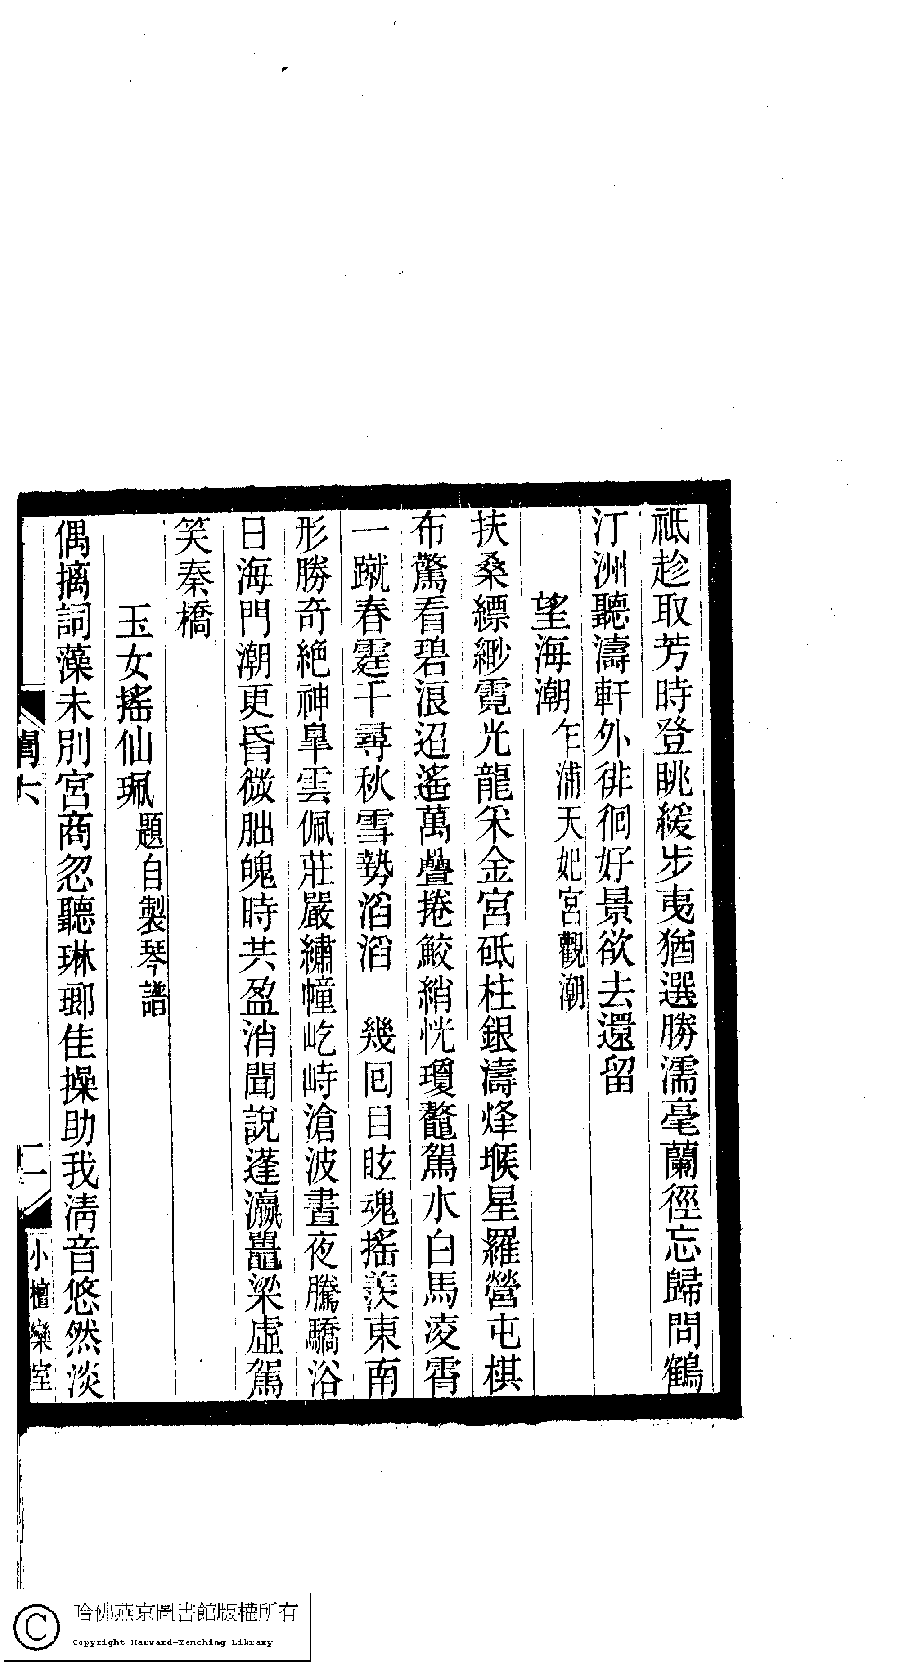 祗趁取芳時登眺緩步夷猶選勝濡毫蘭徑忘歸問鶴
汀洲聽濤軒外徘徊好景欲去還留
望海潮乍浦天妃宮觀潮
扶桑縹緲霓光龍采金宮砥柱銀濤烽堠星羅營屯棋
布驚看碧浪迢遙萬疊捲鮫綃恍瓊鼇駕水白馬凌霄
一蹴春霆千尋秋雪勢滔滔　幾回目眩魂搖羨東南
形勝奇絕神皐雲佩莊嚴繡幢屹峙滄波晝夜騰驕浴
日海門潮更昏微朏魄時共盈消聞說蓬瀛鼉梁虛駕
笑秦橋
玉女搖仙珮題自製琴譜
偶摛詞藻未別宮商忽聽琳瑯佳操助我淸音悠然淡
二
小檀欒室
哈佛燕京圖書館版權所有
Copyright Harvard-Yenching Library